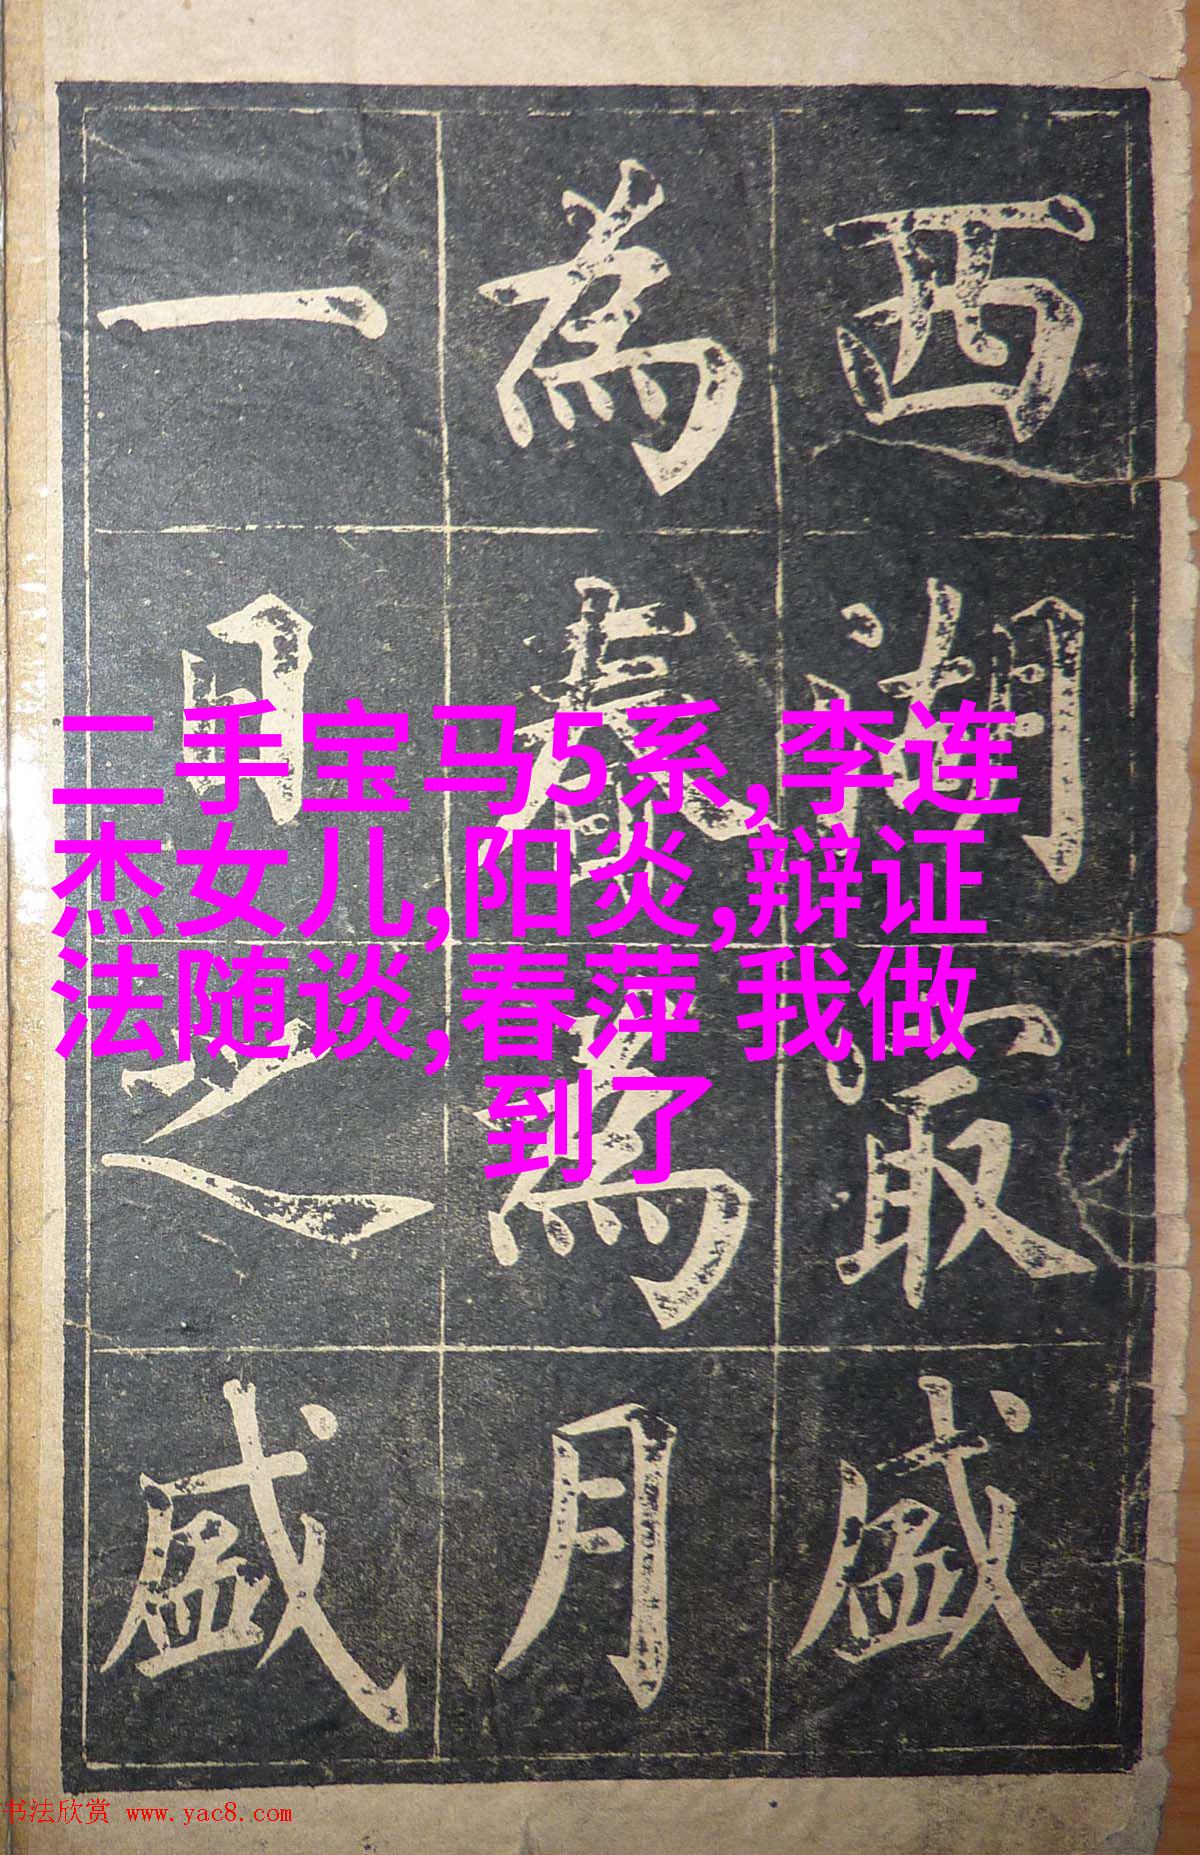 西湖㝡盛
為春為月
一日之盛
二手宝马5系,李连
杰女儿,阳炎,辩证
法随谈,春萍 我做
到了
书法欣赏 www.yac8.com